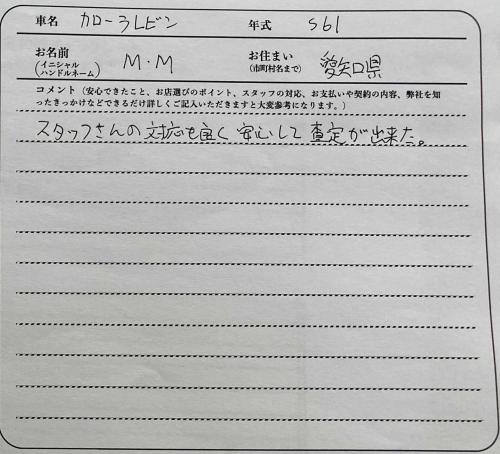 車名 カローラレビン 年式 S61
お名前 (イニシャル ハンドルネーム) M・M お住まい (市町村名まで) 愛知県
コメント（安心できたこと、お店選びのポイント、スタッフの対応、お支払いや契約の内容、弊社を知
ったきっかけなどできるだけ詳しくご記入いただきますと大変参考になります。）
スタッフさんの対応も良く安心して査定が出来た。